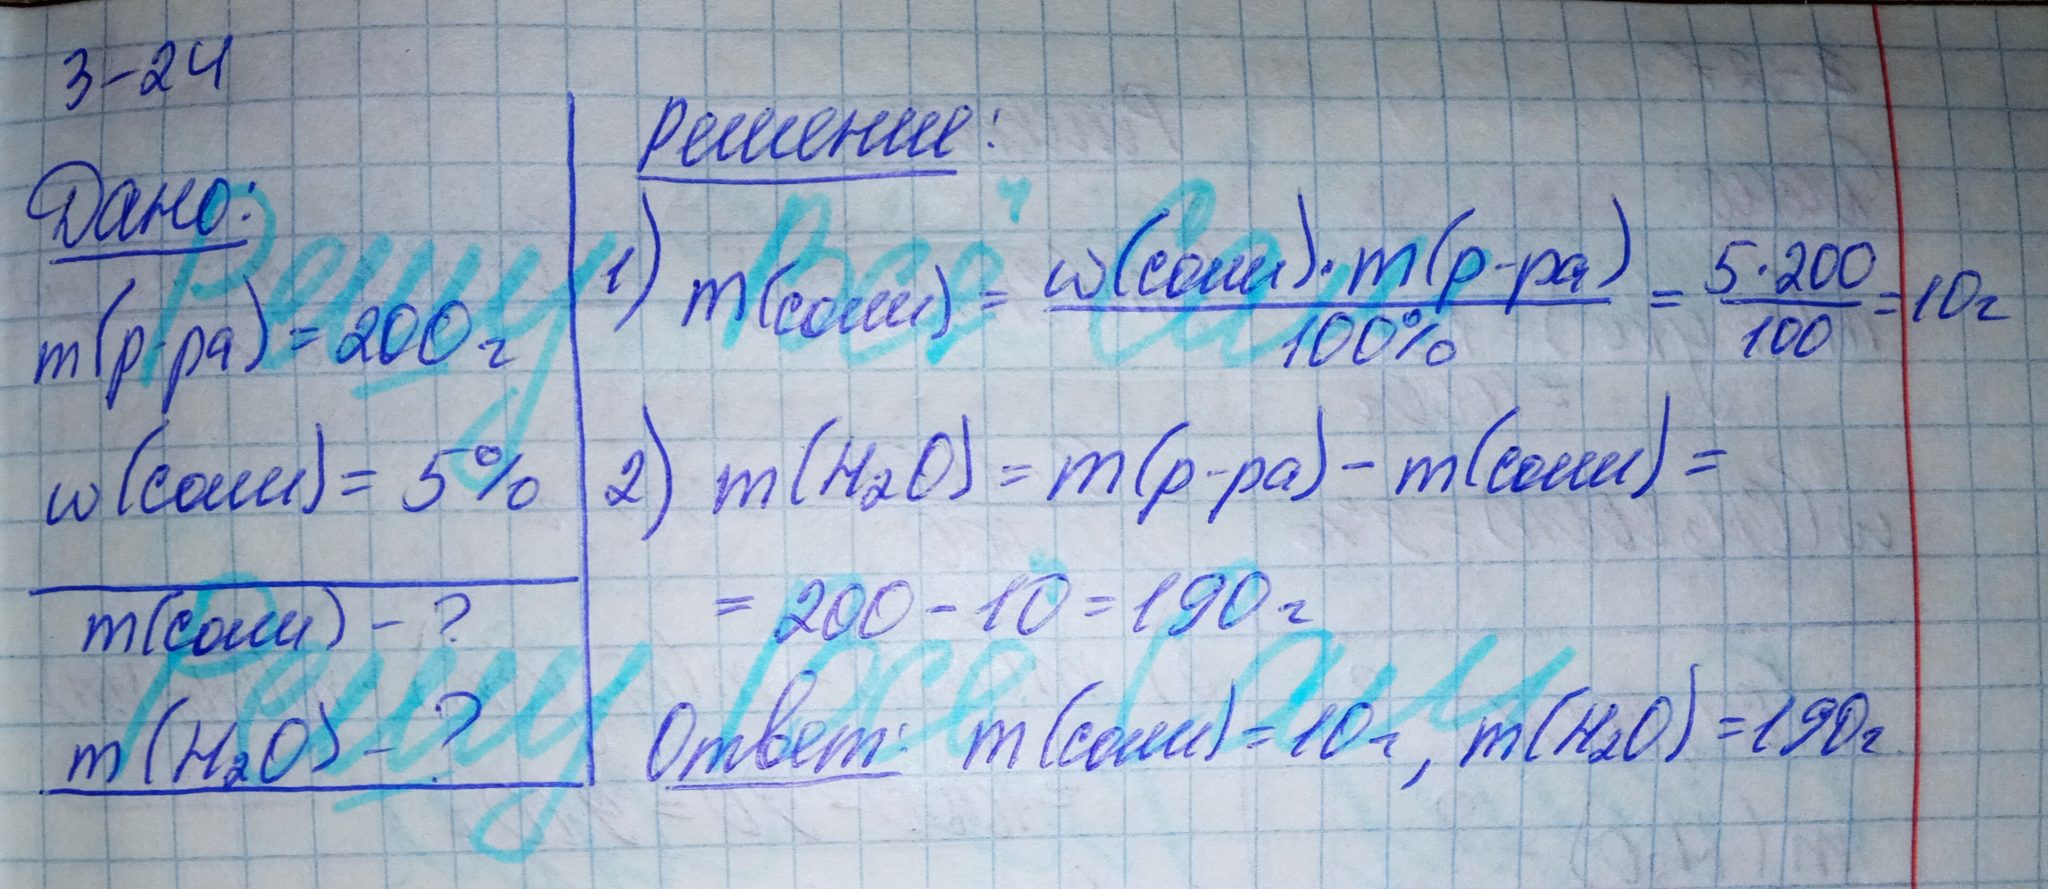 3-24
Дано:
m(р-ра) = 200г
w(соли) = 5%
m(соли) - ?
m(H₂O) - ?
Решение:
1) m(соли) = w(соли)·m(р-ра) / 100% = 5·200 / 100 = 10г
2) m(H₂O) = m(р-ра) - m(соли) =
= 200 - 10 = 190г
Ответ: m(соли) = 10г, m(H₂O) = 190г
Решу Всё Сам
Решу Всё Сам